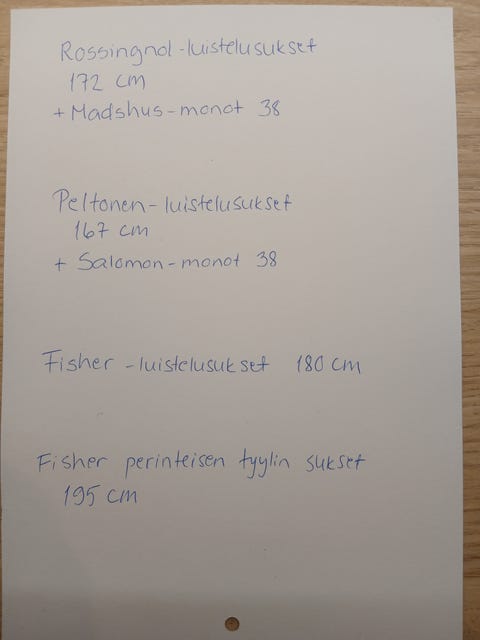 Rossingnol-luistelusukset
172 cm
+ Madshus-monot 38
Peltonen-luistelusukset
167 cm
+ Salomon-monot 38
Fisher -luistelusukset 180 cm
Fisher perinteisen tyylin sukset
195 cm